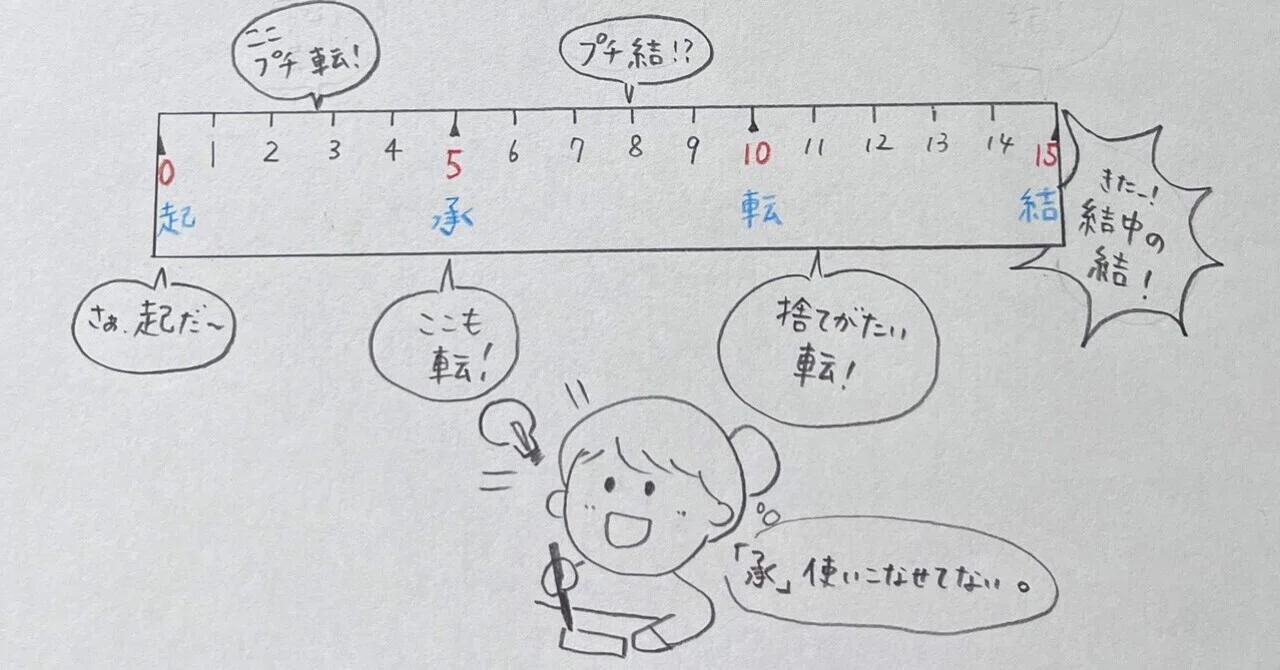 ここ
プチ転!
プチ結!?
0 1 2 3 4 5 6 7 8 9 10 11 12 13 14 15
起 承 転 結
きたー!
結中の
結!
さぁ、起だ〜
ここも
転!
捨てがたい
転!
「承」使いこなせてない。